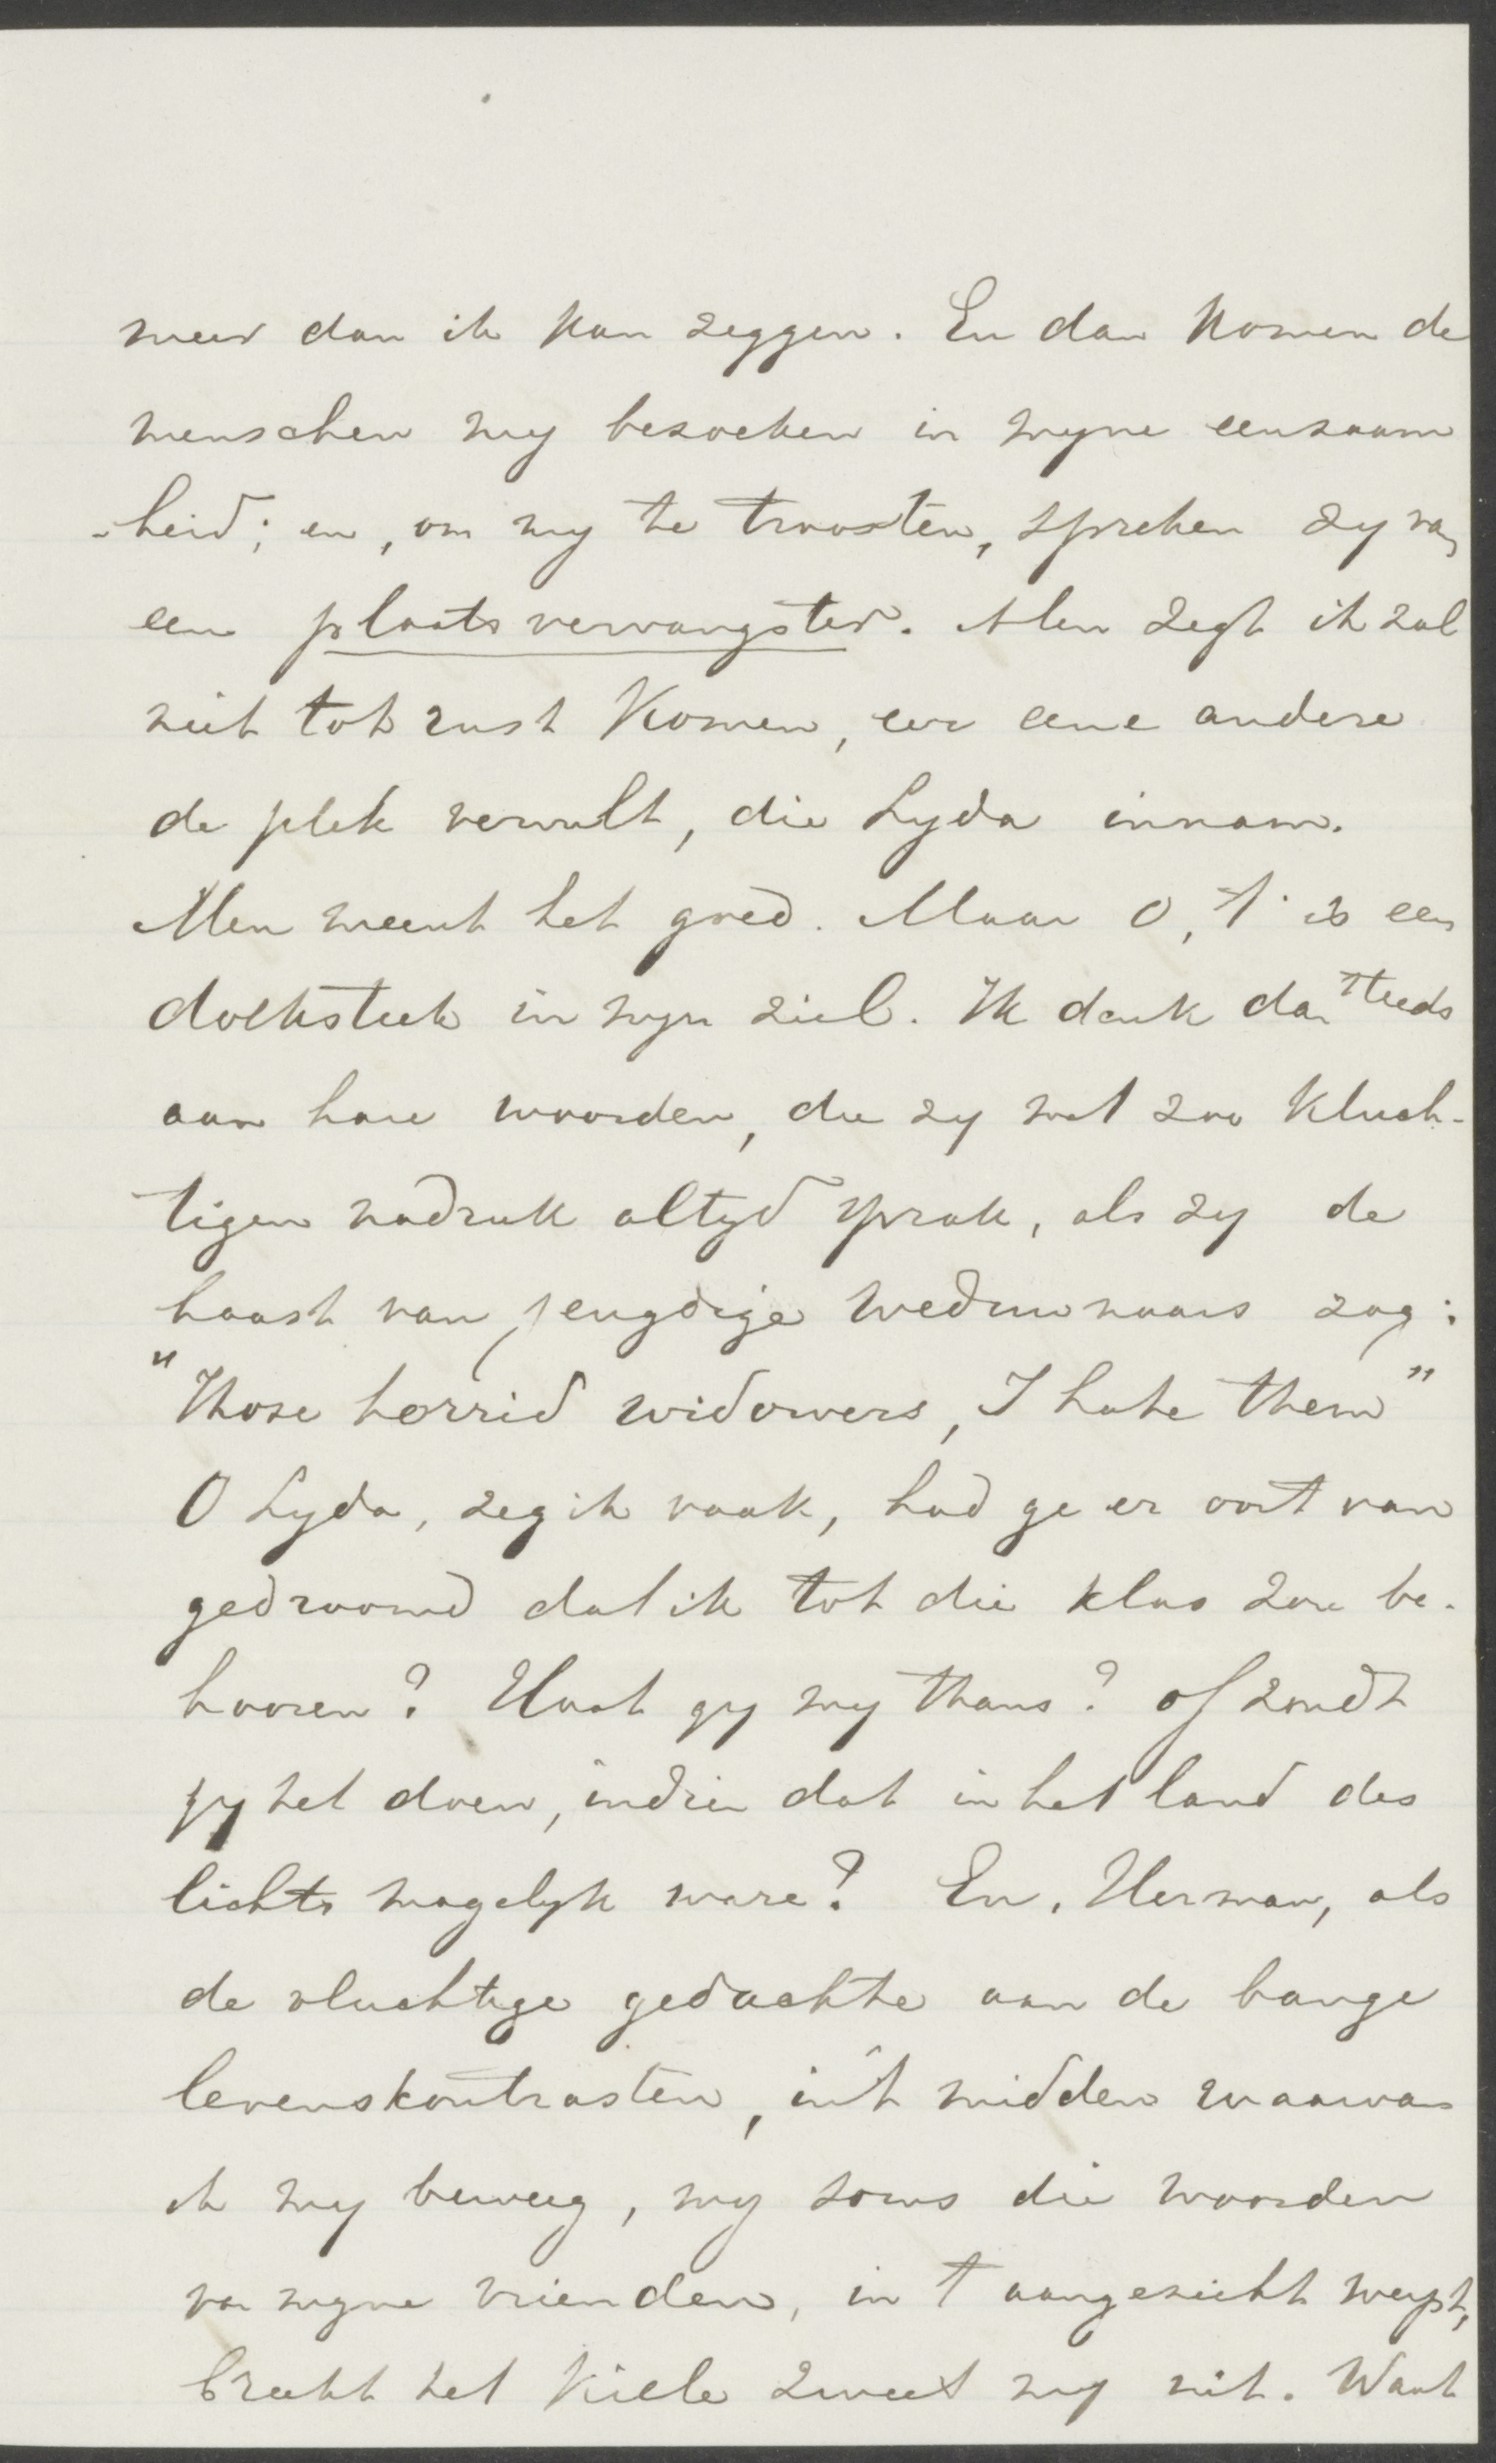 meer dan ik kan zeggen. En dan komen de
menschen my bezoeken in myne eenzaam
-heid; en, om my te troosten, spreken zy van
een plaatsvervangster. Men zegt ik zal
niet tot rust komen, eer eene andere
de plek vervult, die Lyda innam.
Men meent het goed. Maar O, 't is een
dolksteek in myn ziel. Ik denk dan steeds
aan hare woorden, die zy met zoo kluch-
tigen nadruk altyd sprak, als zy de
haast van jeugdige weduwnaars zag:
"Those horrid widowers, I hate them"
O Lyda, zeg ik vaak, had ge er ooit van
gedroomd dat ik tot die klas zou be-
hooren? Haat gy my thans? of zoudt
gy het doen, indien dat in het land des
lichts mogelyk ware? En, Herman, als
de vluchtige gedachte aan de bange
levenskontrasten, in 't midden waarvan
ik my beweeg, my soms die woorden
van myne vrienden, in 't aangezicht werpt,
breekt het kille zweet my uit. Want